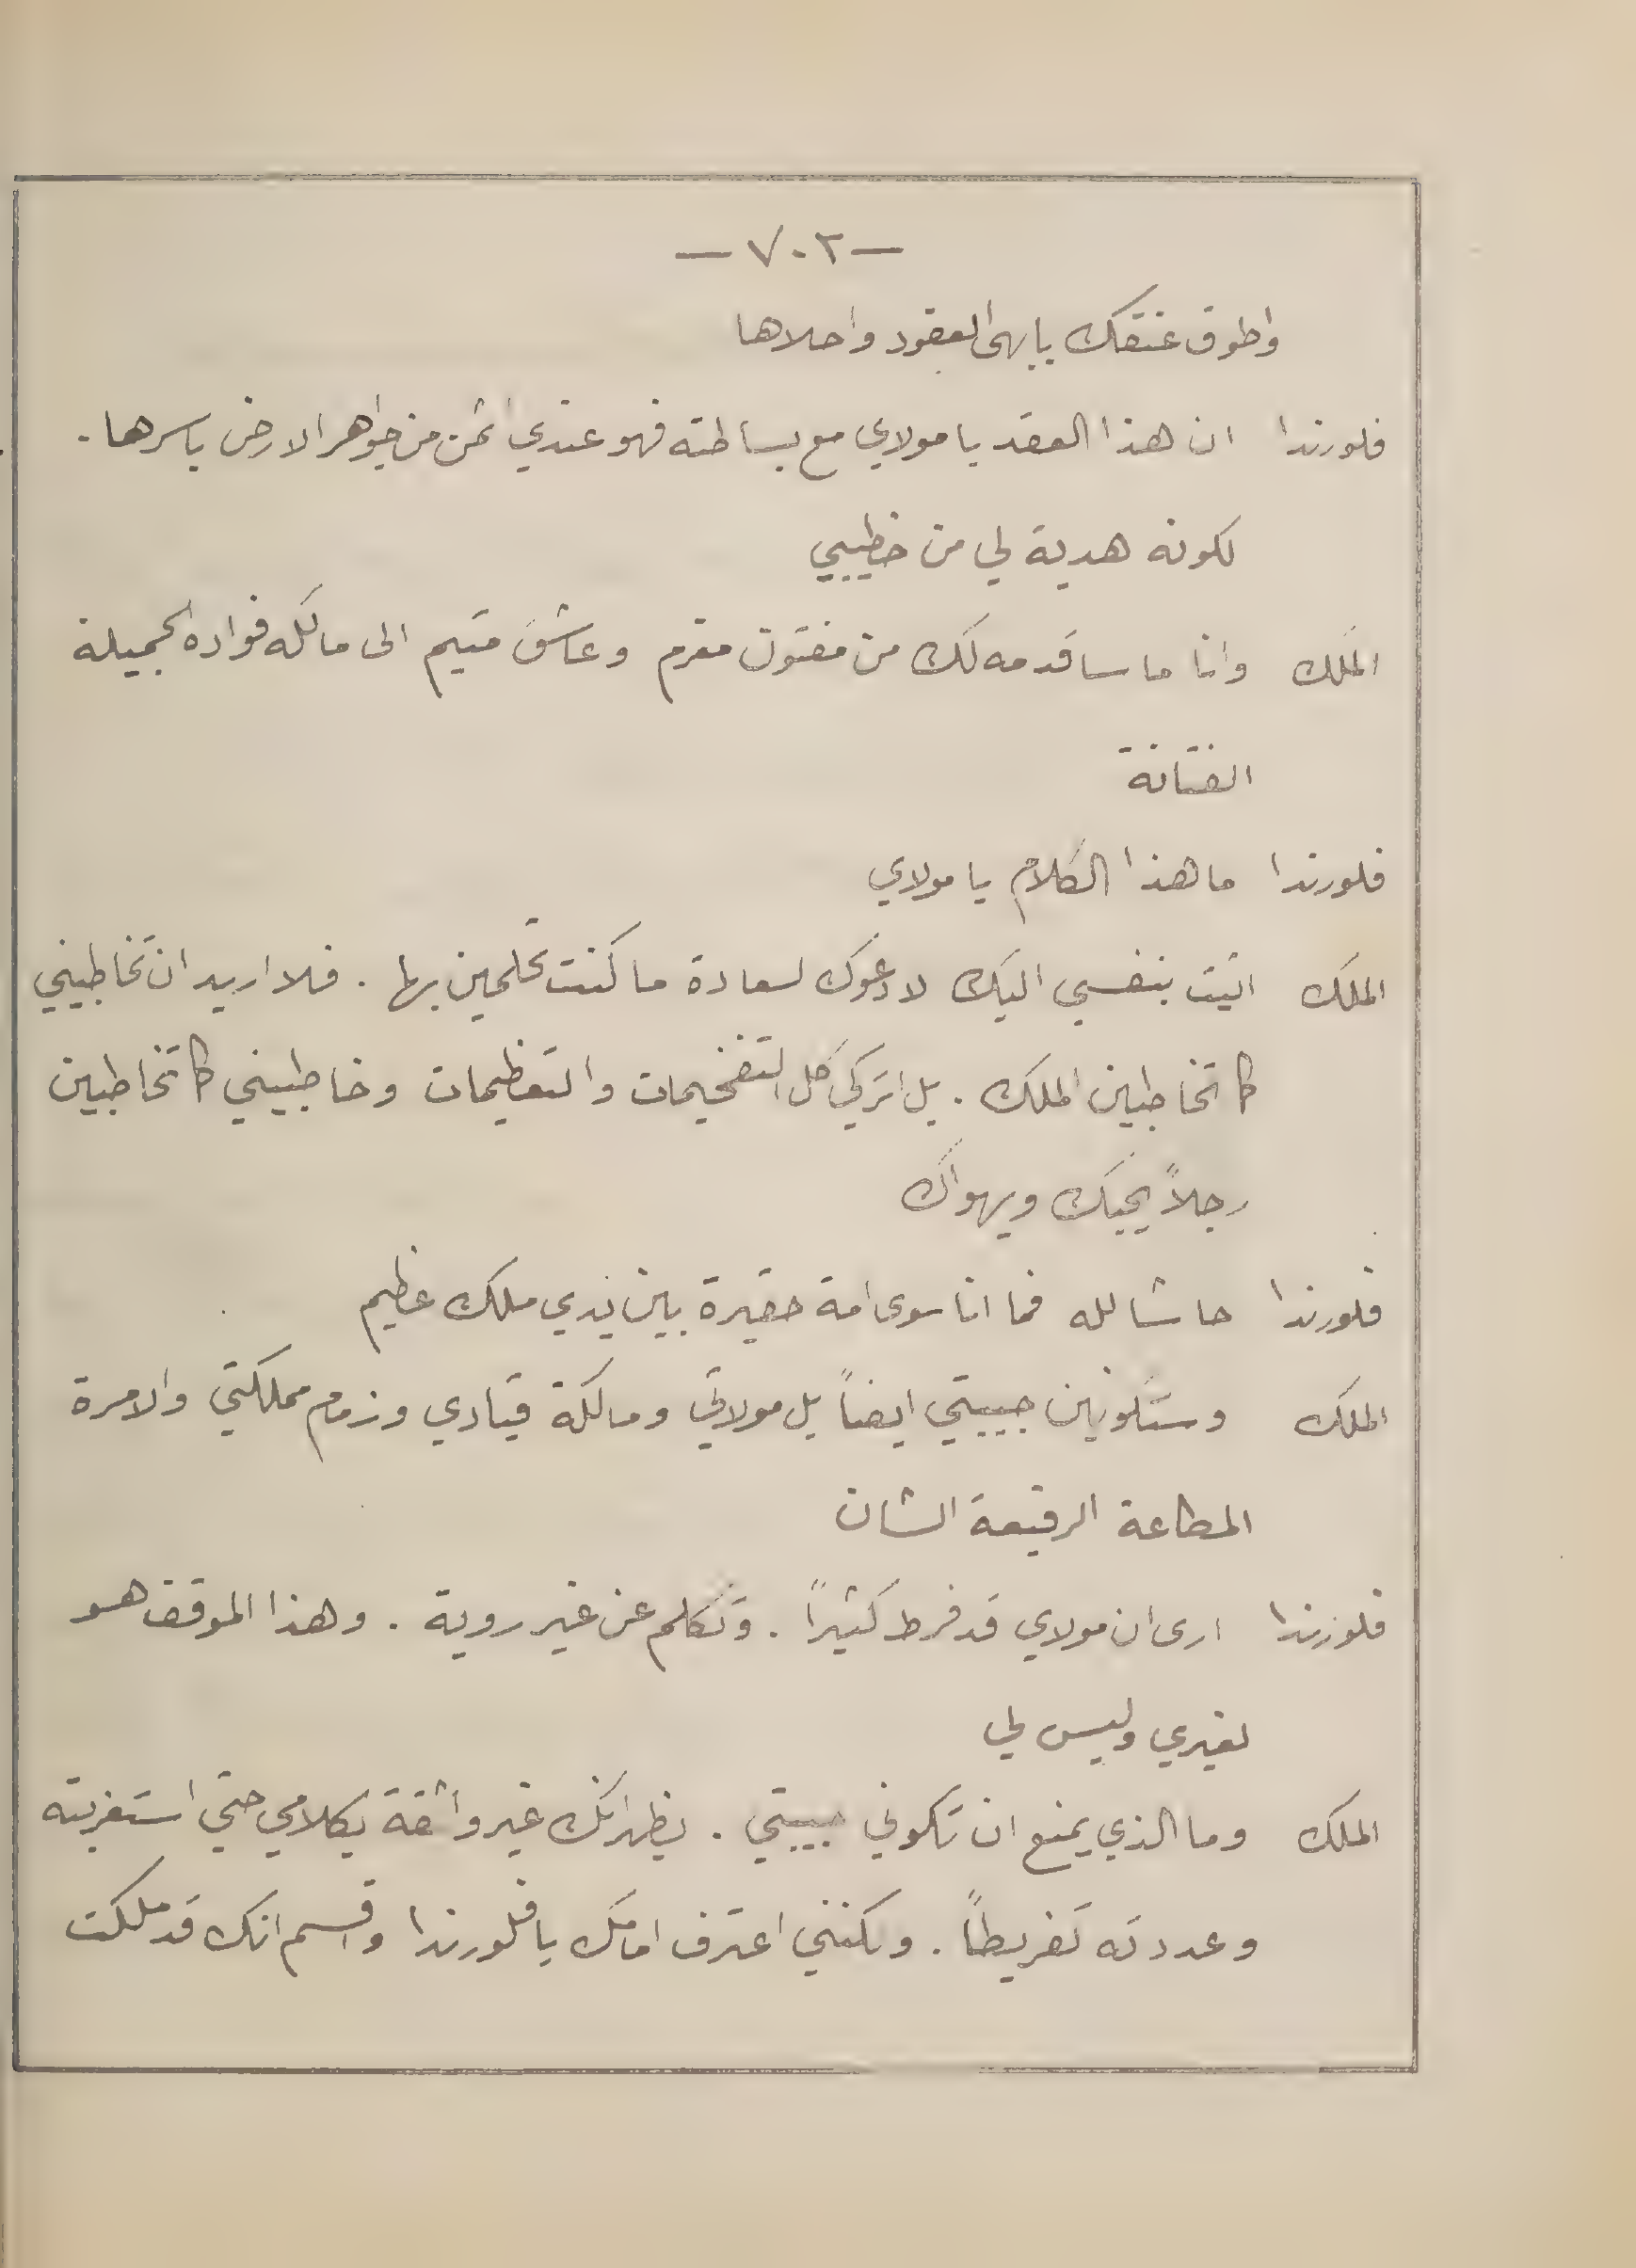 — ٧٠٢ —
واطوق عنقك بابهى العقود واحلاها
فلورندا ان هذا العقد يا مولاي مع بساطته فهو عندي اثمن من جواهر الارض باسرها .
لكونه هدية لي من خطيبي
الملك وانا ما ساقدمه لك من مفتون مغرم وعاشق متيم الى مالكه فواده الجميلة
الفتانة
فلورندا ما هذا الكلام يا مولاي
الملك اتيت بنفسي اليك لادعوك لسعادة ما كنت تحلمين بها . فلا اريد ان تخاطبيني
كما تخاطبين الملك . بل اتركي كل التفخيمات والتعظيمات وخاطبيني كما تخاطبين
رجلاً يحبك ويهواك
فلورندا حاشا لله فما انا سوى امة حقيرة بين يدي ملك عظيم
الملك وستكونين حبيبتي ايضاً بل مولاتي ومالكة قيادي وزمام مملكتي والامرة
المطاعة الرفيعة الشان
فلورندا ارى ان مولاي قد فرط كثيراً . وتكلم عن غير روية . وهذا الموقف هو
لغيري وليس لي
الملك وما الذي يمنع ان تكوني حبيبتي . يظهر انك غير واثقة بكلامي حتى استغربته
وعددته تفريطاً . ولكنني اعترف امامك يا فلورندا واقسم انك قد ملكت